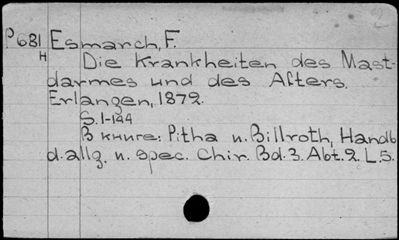 P 681 Esmarch, F.
H
Die Krankheiten des Mast-
darmes und des Afters.
Erlangen, 1872.
S. 1-144
В книге: Pitha u. Billroth, Handb
d. allg. u. spec. Chir. Bd. 3. Abt. 2. L. 5.